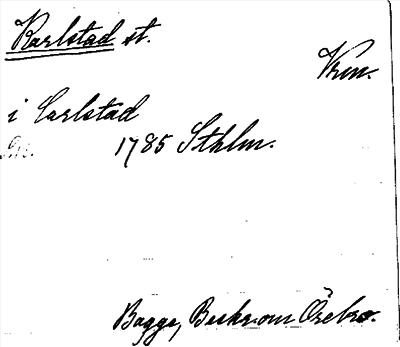 Karlstad st.
Vrm.
i Carlstad
1785 Sthlm.
Bagge, Beskr. om Örebro.